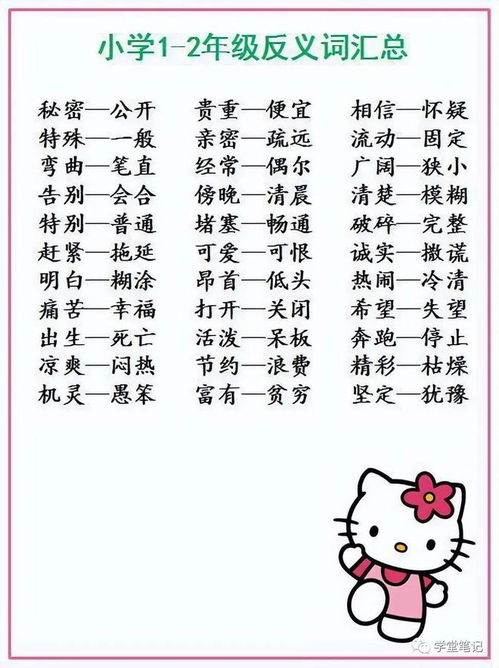 小学1-2年级反义词汇总
秘密—公开 贵重—便宜 相信—怀疑
特殊—一般 亲密—疏远 流动—固定
弯曲—笔直 经常—偶尔 广阔—狭小
告别—会合 傍晚—清晨 清楚—模糊
特别—普通 堵塞—畅通 破碎—完整
赶紧—拖延 可爱—可恨 诚实—撒谎
明白—糊涂 昂首—低头 热闹—冷清
痛苦—幸福 打开—关闭 希望—失望
出生—死亡 活泼—呆板 奔跑—停止
凉爽—闷热 节约—浪费 精彩—枯燥
机灵—愚笨 富有—贫穷 坚定—犹豫
学堂笔记